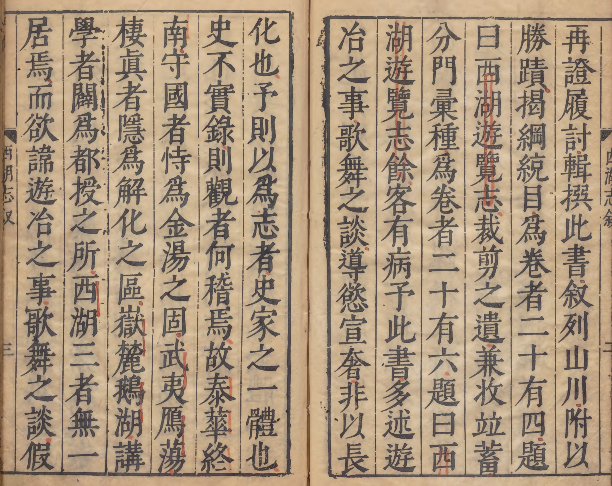 再證履討輯撰此書叙列山川附以
勝蹟揭綱統目爲卷者二十有四題
曰西湖遊覽志裁剪之遺兼收並蓄
分門彙種爲卷者二十有六題曰西
湖遊覽志餘客有病予此書多述遊
冶之事歌舞之談導慾宣奢非以長
化也予則以爲志者史家之一體也
史不實錄則觀者何稽焉故泰華終
南守國者恃爲金湯之固武夷鴈蕩
棲真者隱爲解化之區嶽麓鵝湖講
學者闢爲都授之所西湖三者無一
居焉而欲諱遊冶之事歌舞之談假
西湖志叙
三